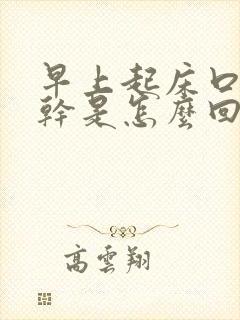 早上起床口
幹是怎麼回
高雲翔